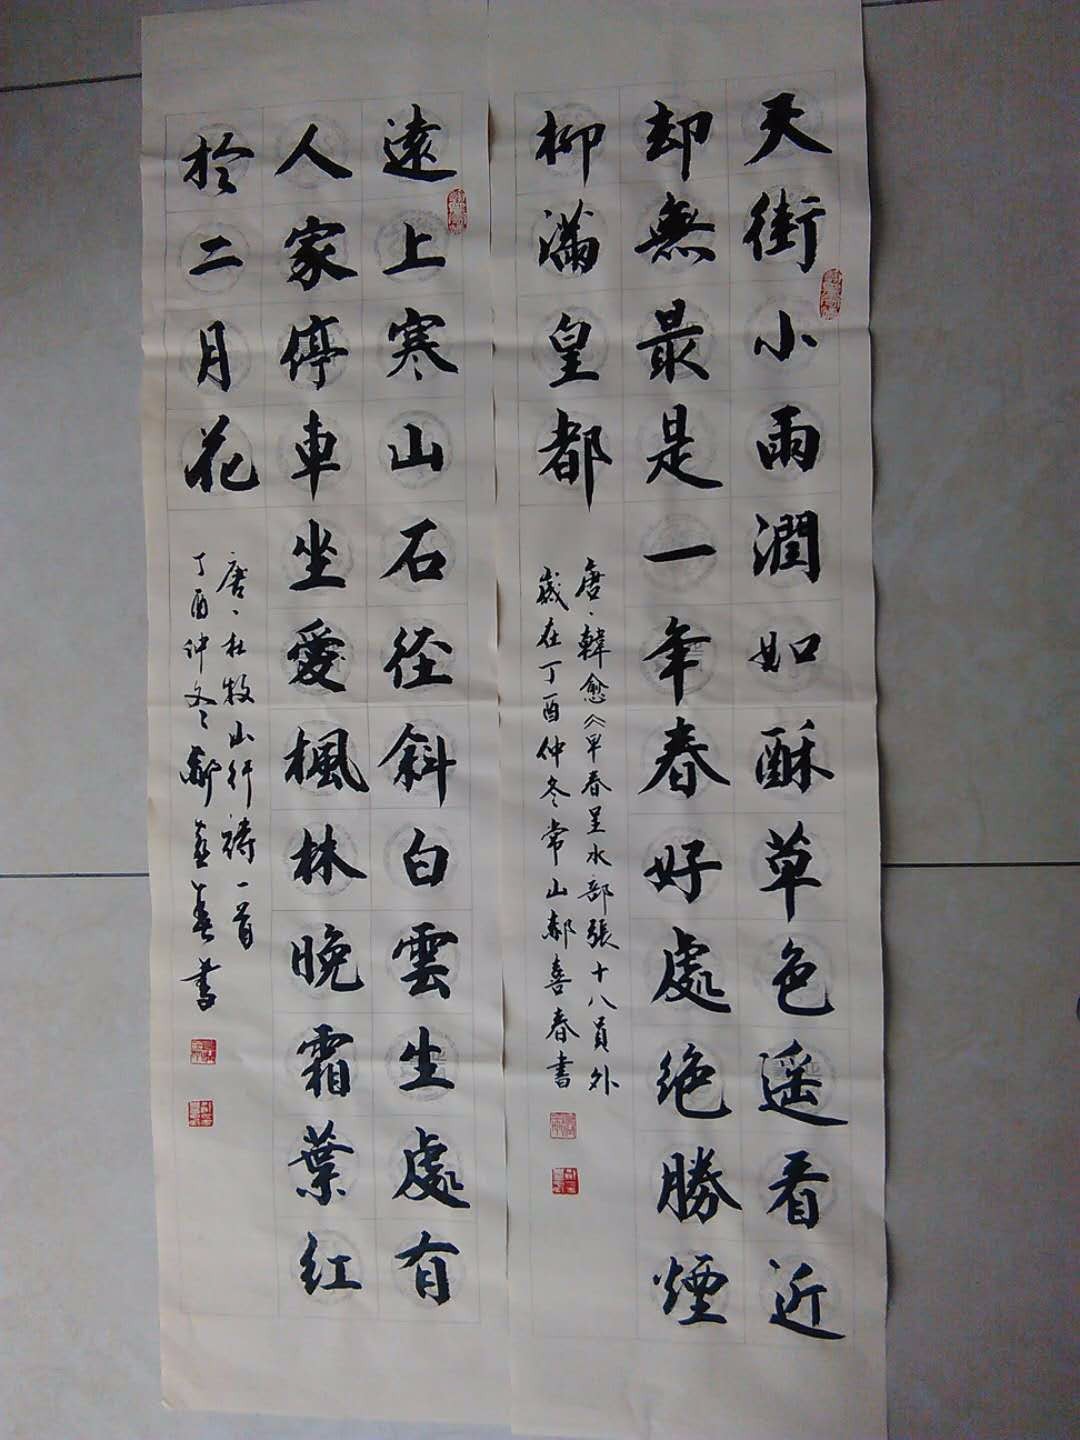 天街小雨潤如酥草色遥看近
却無最是一年春好處絶勝煙
柳滿皇都
唐、韓愈《早春呈水部張十八員外
歲在丁酉仲冬常山郝喜春書
遠上寒山石径斜白雲生處有
人家停車坐愛楓林晚霜葉红
於二月花
唐、杜牧山行詩一首
丁酉仲冬郝喜春書